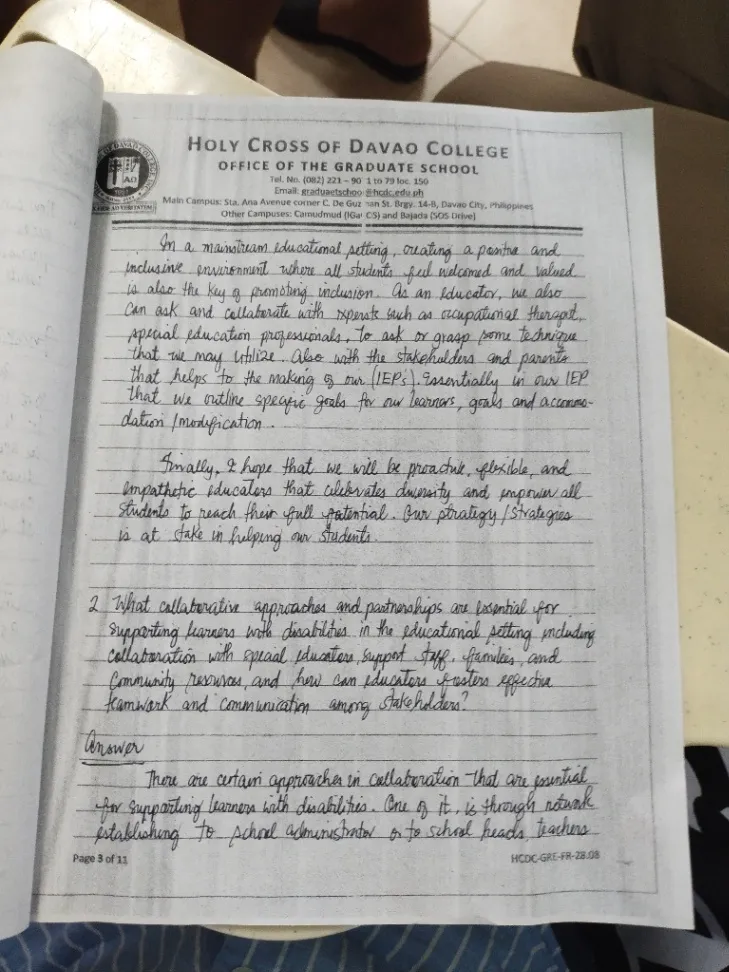 HOLY CROSS OF DAVAO COLLEGE
OFFICE OF THE GRADUATE SCHOOL
Tel. No. (082) 221 – 90 1 to 79 loc. 150
Email: graduateschoo @hcdc.edu.ph
Main Campus: Sta. Ana Avenue corner C. De Guz an St. Brgy. 14-B, Davao City, Philippines
Other Campuses: Camudmud (IGa CS) and Bajada (SOS Drive)
In a mainstream educational setting, creating a positive and
inclusive environment where all students feel welcomed and valued
is also the key of promoting inclusion. As an educator, we also
can ask and collaborate with experts such as occupational therapist,
special education professionals, to ask or grasp some technique
that we may utilize. Also with the stakeholders and parents
that helps to the making of our (IEPs). Essentially in our IEP
that we outline specific goals for our learners, goals and accommo-
dation / modification.
Finally, I hope that we will be proactive, flexible, and
empathetic educators that celebrates diversity and empower all
students to reach their full potential. Our strategy / strategies
is at stake in helping our students.
2 What collaborative approaches and partnerships are essential for
supporting learners with disabilities in the educational setting including
collaboration with special educators, support staff, families, and
community resources, and how can educators fosters effective
teamwork and communication among stakeholders?
Answer
There are certain approaches in collaboration that are essential
for supporting learners with disabilities. One of it, is through network
establishing to school administrator or to school heads, teachers
Page 3 of 11
HCDC-GRE-FR-28.08